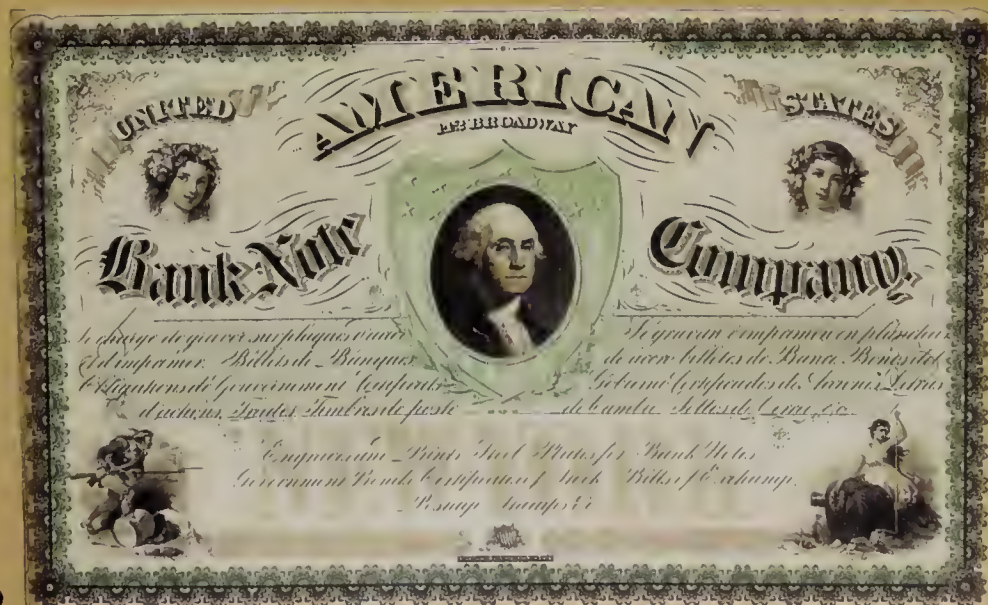 UNITED
AMERICAN
STATES
142 BROADWAY
Bank Note
Company,
Se charge de graver sur plaques d'acier
et d'imprimer Billets de Banques
Obligations de Gouvernement Certificats
d'actions Traites Timbres de poste
Se gravan é imprimen en planchas
de acero billetes de Banco, Bonos del
Gobierno Certificados de Letras
de Cambio Sellos de
Engraves and Prints Steel Plates for Bank Notes
Government Bonds Certificates of Stock Bills of Exchange
Postage Stamps &c